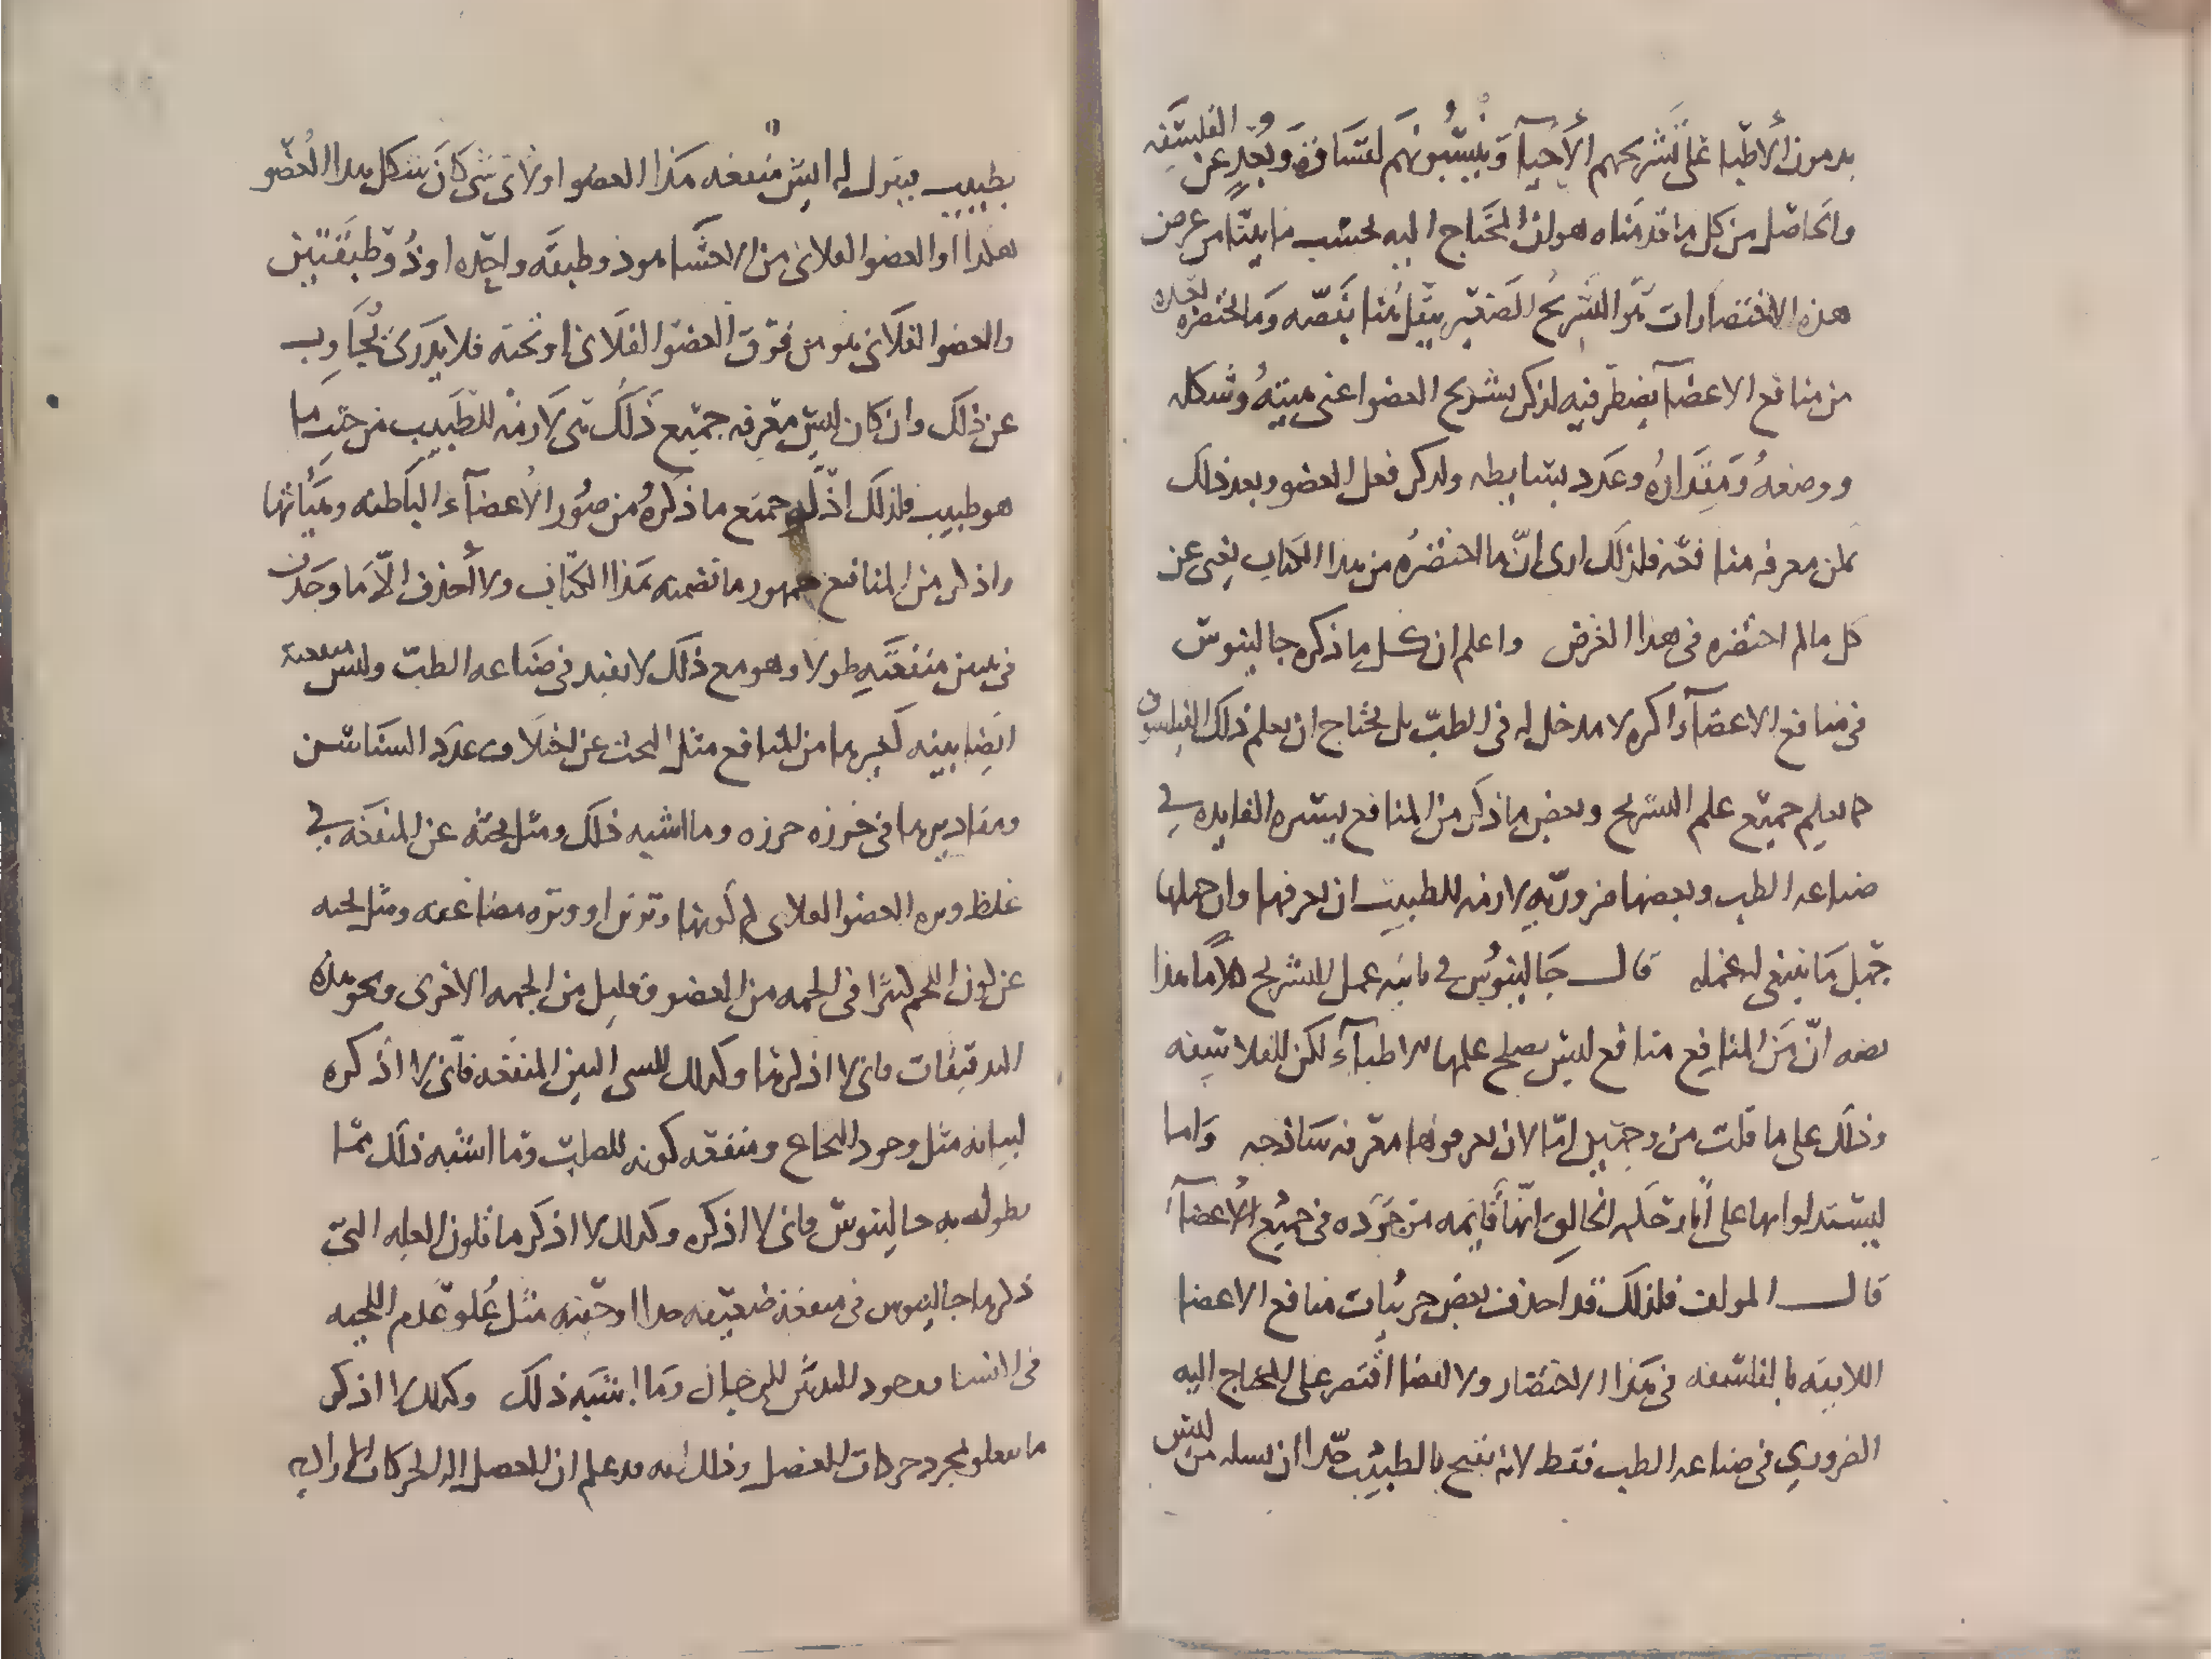 يذمون الأطبا على تشريحهم الأحيآ وينسبونهم لقساوة وبُعدٍ عن الفلسفه
والحاصل من كل ما قدمناه هو ان المحتاج اليه بحسب ما بيّنا من غرض
هذه الاختصارات هو التشريح الصغير ينقل هنا بنصّه وما اختصره بعده
من منافع الاعضآ يضطر فيه لذكر تشريح العضو اعنى هيئتهُ وشكله
ووضعهُ ومقدارهُ وعدد بسايطه ولذكر فعل العضو وبعد ذلك
يمكن معرفه منافعه فلذلك ارى انّ ما اختصرهُ من هذا الكتاب يغنى عن
كل مالم اختصره فى هذا الغرض واعلم ان كل ما ذكره جالينوس
فى منافع الاعضآء اكثره لا مدخل له فى الطبّ بل يحتاج ان يعلم ذلك الفيلسوف
كما يعلم جميع علم التشريح وبعض ما ذكر من المنافع يسيره الفايده في
صناعه الطب وبعضها ضروريّه لازمه للطبيب ان يعرفها وان جهلها
جهل ما ينبغى له عمله قال جالينوس فى ثانيه عمل التشريح كلامًا هذا
نصه انّ من المنافع منافع ليس يصلح علمها للاطبآء لكن للفلاسفه
وذلك على ما قلت من وجهين امّا لان يعرفونها معرفه ساذجه واما
ليستدلوا بها على انّ حكمه الخالق انّها قايمه موجوده فى جميع الأعضآء
قال المولف فلذلك قد احذف بعض جزئيات منافع الاعضا
اللايقه بالفلسفه فى هذا الاختصار ولا ايضا اقتصر على المحتاج اليه
الضروري فى صناعه الطب فقط لانه يقبح بالطبيب جدّا ان يسله من ليس
بطبيب فيقول له ايش منفعه هذا العضو او لاى شى كان شكل هذا العضو
هكذا او العضو الفلانى من الاحشا هو ذو طبقه واحده او ذُو طبقتين
والعضو الفلانى هو من فوق العضو الفلانى او تحته فلا يدرى يُجاوب
عن ذلك وان كان ليس معرفه جميع ذلك شى لازمه للطبيب من حيث ما
هو طبيب فلذلك اذكر جميع ما ذكرهُ من صُور الأعضآء الباطنه وهيأتها
واذكر من المنافع جمهور ما تضمنه هذا الكتاب ولا أحذف الّا ما وجدت
فى تبيين منفعته طولا وهو مع ذلك لا يفيد فى صناعه الطبّ وليس منفعته
ايضا بينه كغيرها من المنافع مثل البحث عن اختلاف عدد السناسن
ومقاديرها فى خرزه خرزه وما اشبه ذلك ومثل بحثه عن المنفعه في
غلظ وتره العضو الفلانى لم كونها وترين او وتره مضاعفه ومثل بحثه
عن كون اللحم كثيرًا فى الجهه من العضو وقليل من الجهه الاخرى ونحو هذه
التدقيقات فانى لا اذكرها وكذلك الشى البيّن المنفعه فانّى لا اذكره
لبيانه مثل وجود النخاع ومنفعه كونه للصلب وما اشبه ذلك ممّا
يطول به جالينوس فانى لا اذكره وكذلك لا اذكر ما تكون العله التى
ذكرها جالينوس فى منفعته ضعيفه جدا او خفيّه مثل عُلوّ عدم اللحيه
فى النسا ووجود للرجال وما اشبه ذلك وكذلك لا اذكر
ما تعلق بمجرد حركات العضل وذلك انه قد علم ان العضل اله الحركات الاراديه